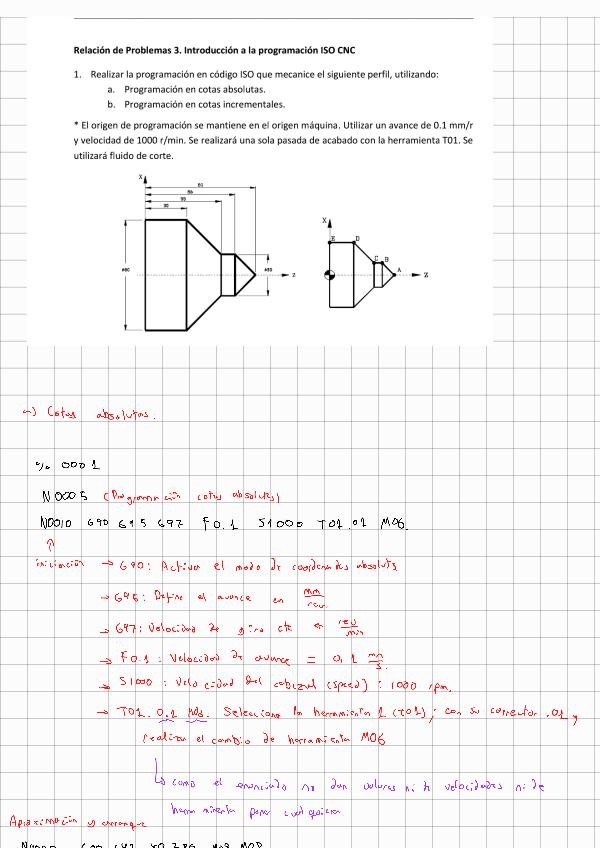 Relación de Problemas 3. Introducción a la programación ISO CNC
1. Realizar la programación en código ISO que mecanice el siguiente perfil, utilizando:
a. Programación en cotas absolutas.
b. Programación en cotas incrementales.
* El origen de programación se mantiene en el origen máquina. Utilizar un avance de 0.1 mm/r
y velocidad de 1000 r/min. Se realizará una sola pasada de acabado con la herramienta T01. Se
utilizará fluido de corte.
X
Z
X
E D
C B
A
Z
a) Cotas absolutas.
% 0001
N0005 (Programación cotas absolutas)
N0010 G90 G95 G97 F0.1 S1000 T01.01 M06
iniciación → G90: Activa el modo de coordenadas absolutas
→ G95: Define el avance en mm/rev
→ G97: Velocidad de giro cte en rev/min
→ F0.1: Velocidad de avance = 0,1 mm/s.
→ S1000: Velocidad del cabezal (speed): 1000 rpm.
→ T01. 0.1 Selecciona la herramienta 1 (T01), con su corrector .01 y
realiza el cambio de herramienta M06
como el enunciado no dan valores ni de velocidades ni de
herramienta poner cualquiera
Aproximación y arranque